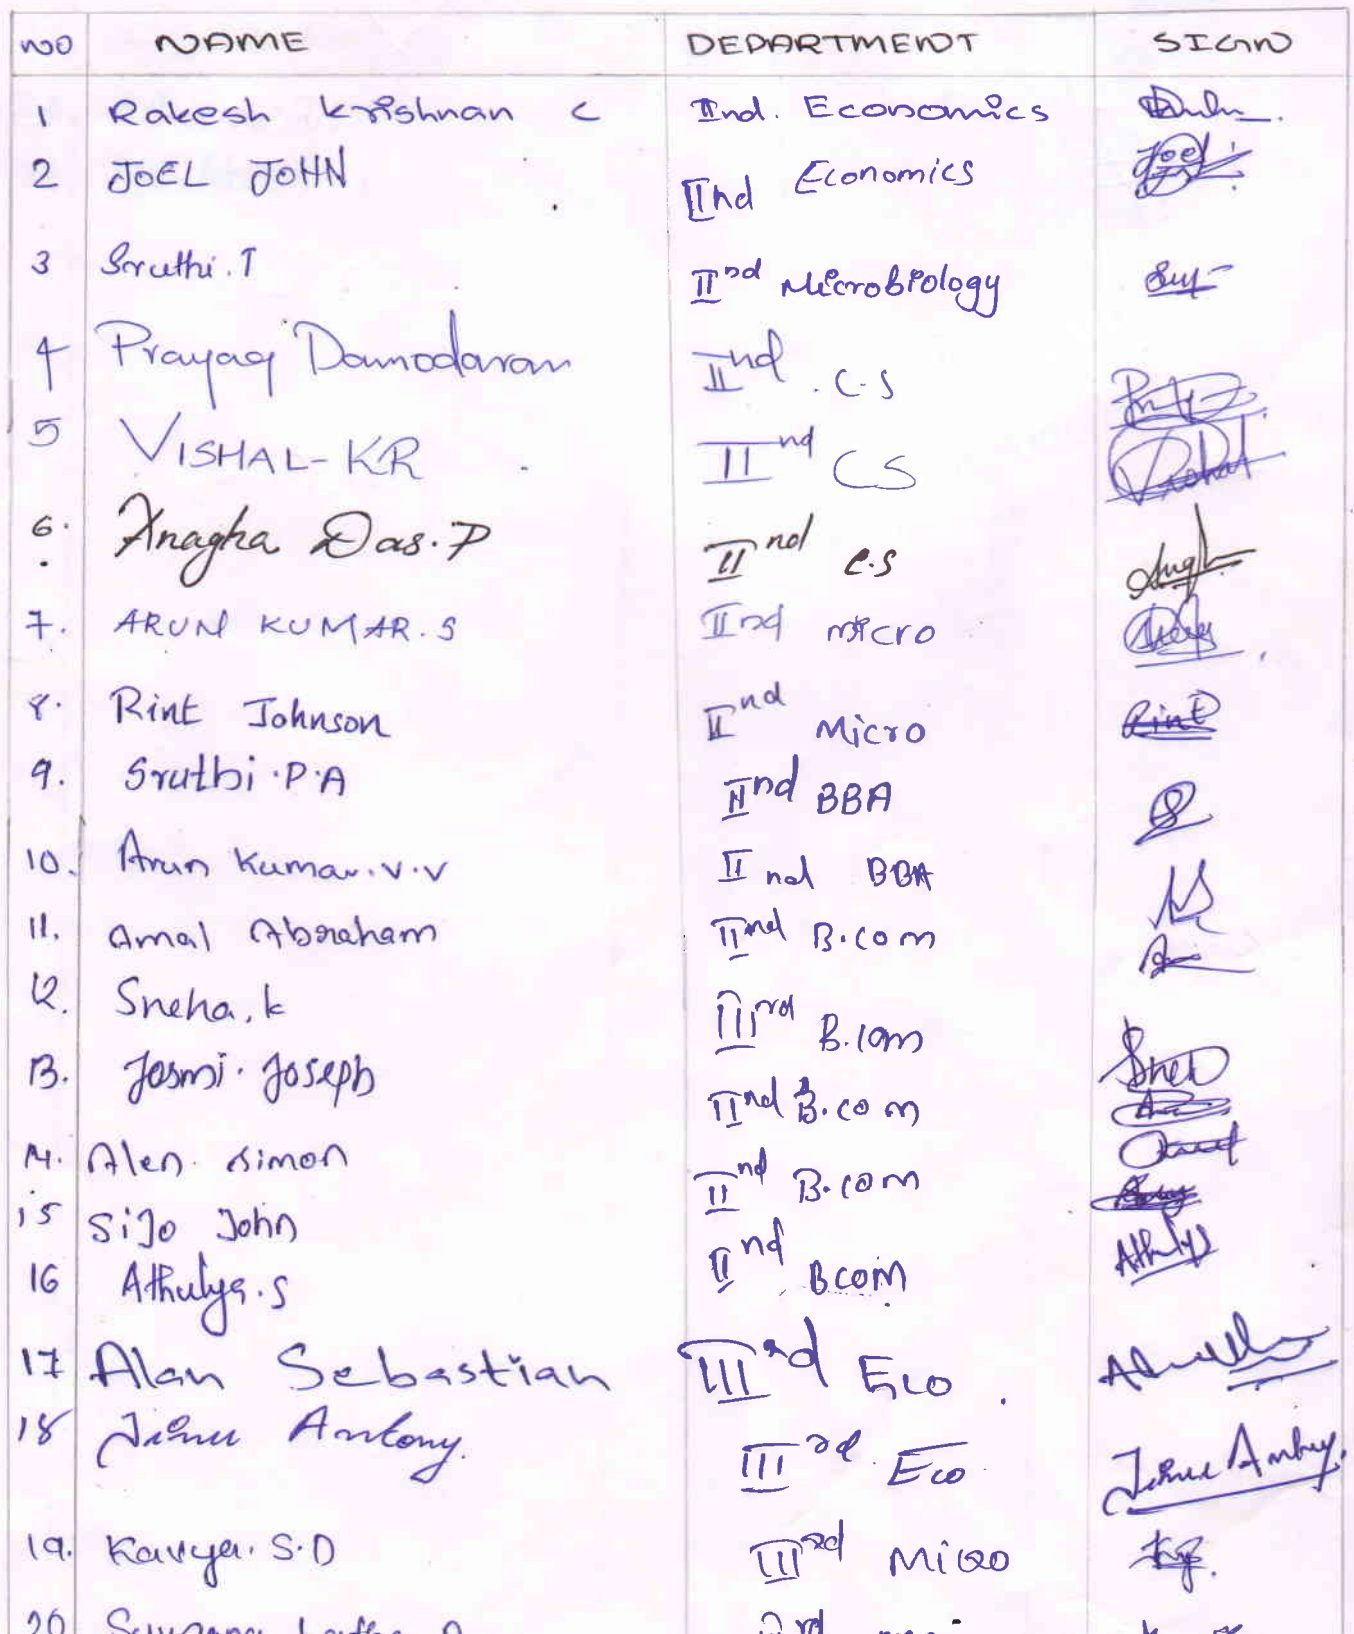 NO NAME DEPARTMENT SIGN
1 Rakesh Krishnan C IInd. Economics
2 JOEL JOHN IInd Economics Joel
3 Sruthi.T IInd Microbiology
4 Prayag Damodaran IInd C.S
5 VISHAL-KR IInd CS Vishal
6. Anagha Das.P IInd C.S
7. ARUN KUMAR.S IInd micro
8. Rint Johnson IInd Micro Rint
9. Sruthi.P.A IInd BBA
10. Arun Kumar.V.V IInd BBA
11. Amal Abraham IInd B.com
12. Sneha.k IIIrd B.com
13. Josmi.Joseph IInd B.com
14. Alen Simon IInd B.com
15 SiJo John
16 Athulya.S IInd BCOM Athulya
17 Alan Sebastian IIIrd Eco
18 Jinu Antony. IIIrd Eco Jinu Antony.
19. Kavya.S.D IIIrd Micro
20